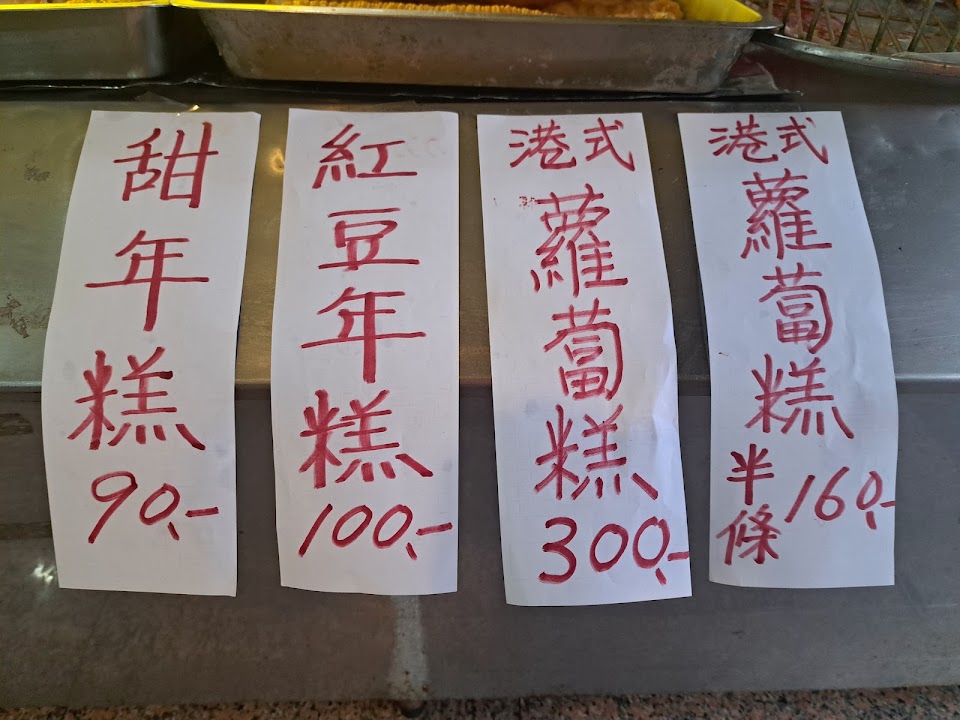 甜年糕
90,-
紅豆年糕
100,-
港式
蘿蔔糕
300,-
港式
蘿蔔糕
半條
160,-